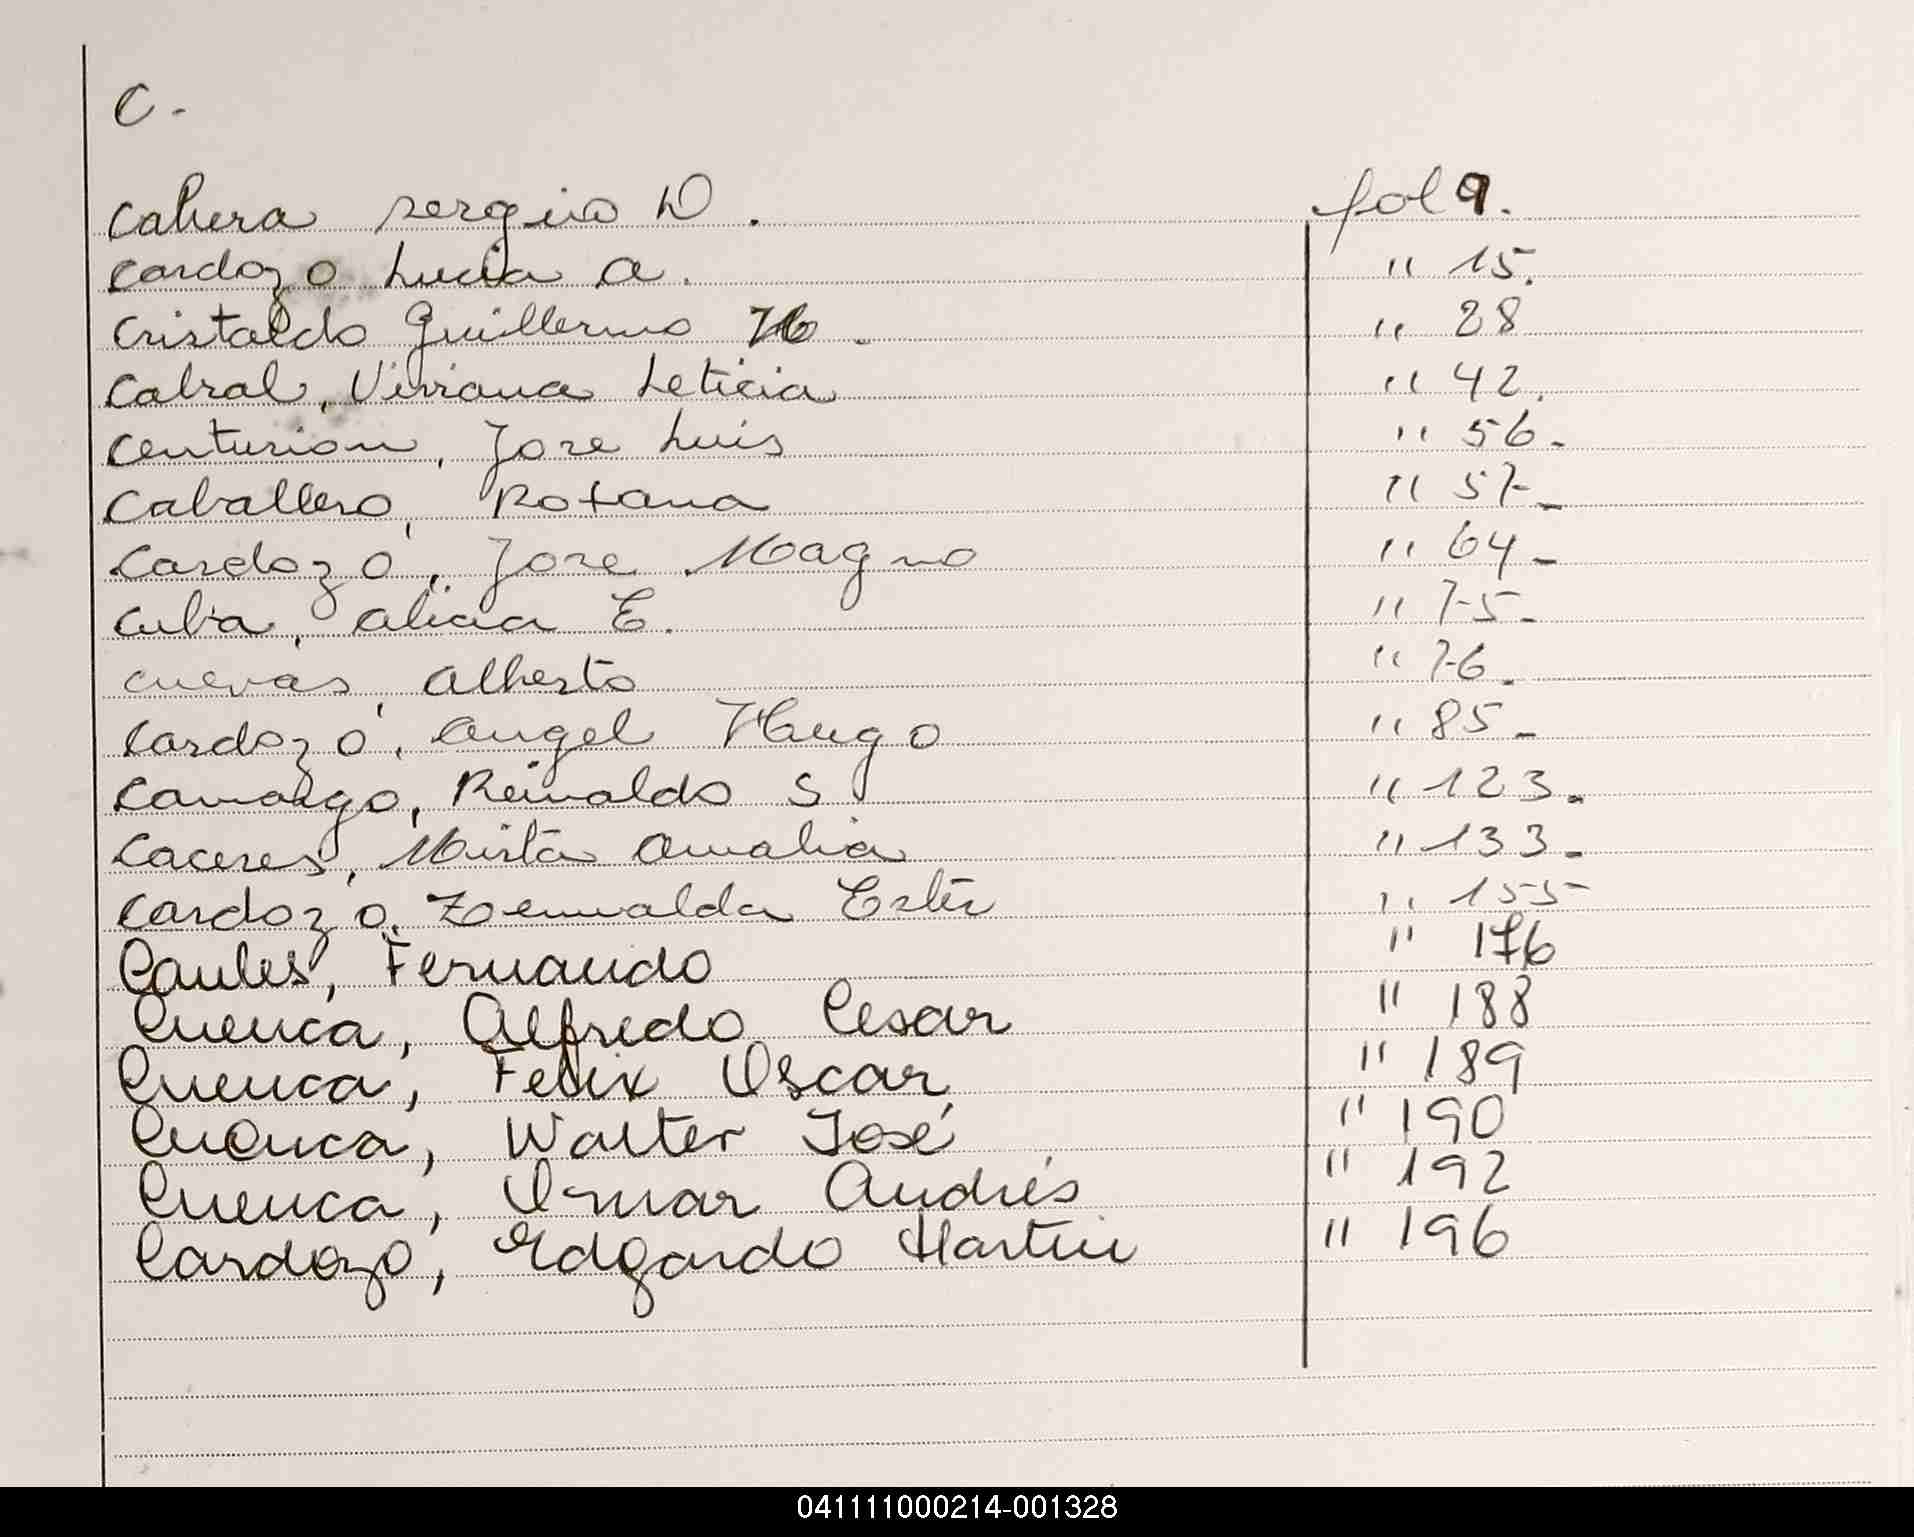 C.
Cabrera Sergio D. fol 9.
Cardozo Lucia A. " 15.
Cristaldo Guillermo H. " 28
Cabral, Viviana Leticia " 42.
Centurion, Jose Luis " 56.
Caballero, Roxana " 57-
Cardozo, Jose Magno " 64-
Cuba, Alicia E. " 75-
Cuevas, Alberto " 76.
Cardozo, Angel Hugo " 85-
Camargo, Reinaldo S " 123-
Caceres, Mirta Amalia " 133-
Cardozo, Ester " 155-
Caules, Fernando " 176
Cuenca, Alfredo Cesar " 188
Cuenca, Felix Oscar " 189
Cuenca, Walter José " 190
Cuenca, Omar Andrés " 192
Cardozo, Edgardo Martin " 196
041111000214-001328